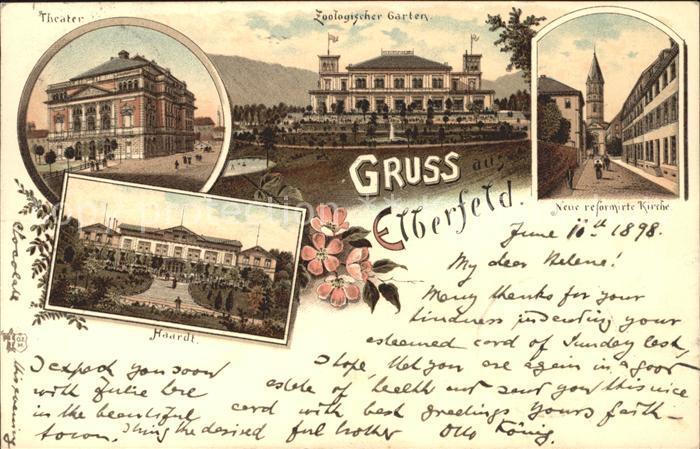 Theater
Zoologischer Garten.
Neue reformirte Kirche
Haardt.
GRUSS aus
Elberfeld.
June 10th 1898.
My dear Helene!
Many thanks for your
kindness in sending your
esteemed card of Sunday last,
I hope, that you are again in a good
estate of health and sent you this nice
card with best greetings yours faith-
ful brother Otto König.
I expect you soon
with Julie here
in the beautiful
town. I bring the desired
Chocolate
this evening